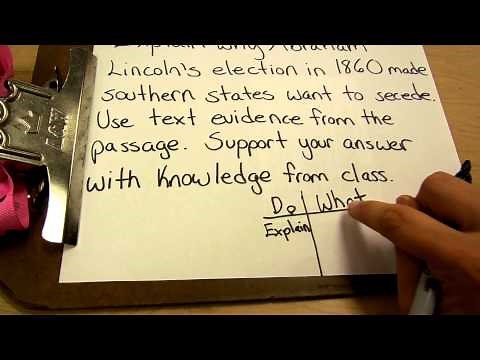 Explain why Abraham
Lincoln's election in 1860 made
southern states want to secede.
Use text evidence from the
passage. Support your answer
with Knowledge from class.
Do What
Explain